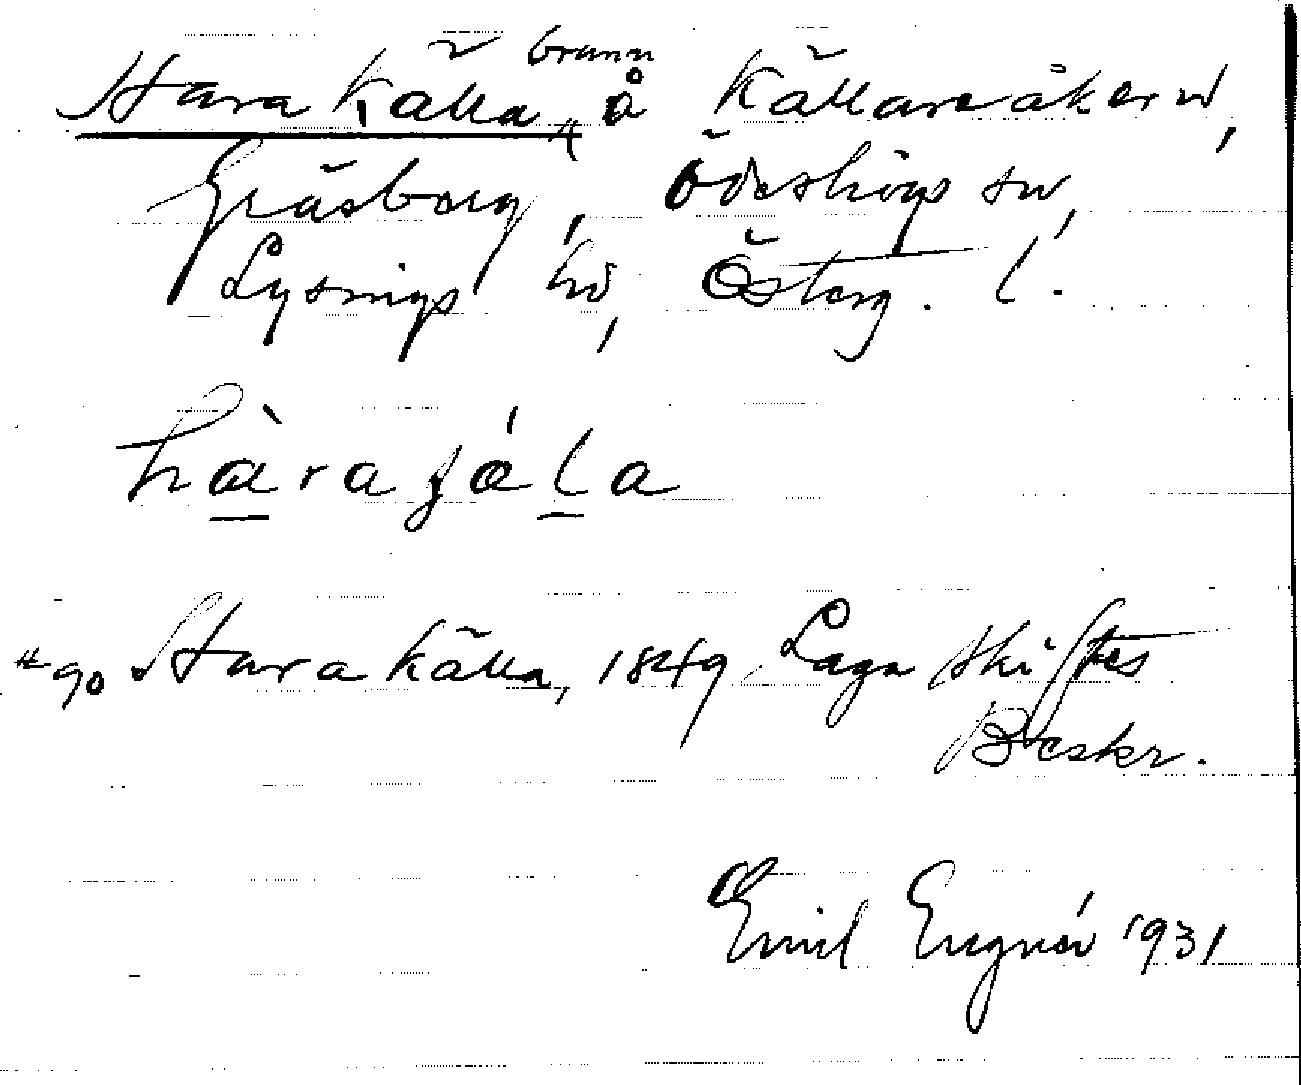 brunn
Harakälla, å Källareåkern,
Gräsberg, Ödeshögs sn,
Lysings hd, Österg. l.
hàrajɑ́la
#90 Harakälla, 1849 Laga Skiftes
Beskr.
Emil Engnér 1931